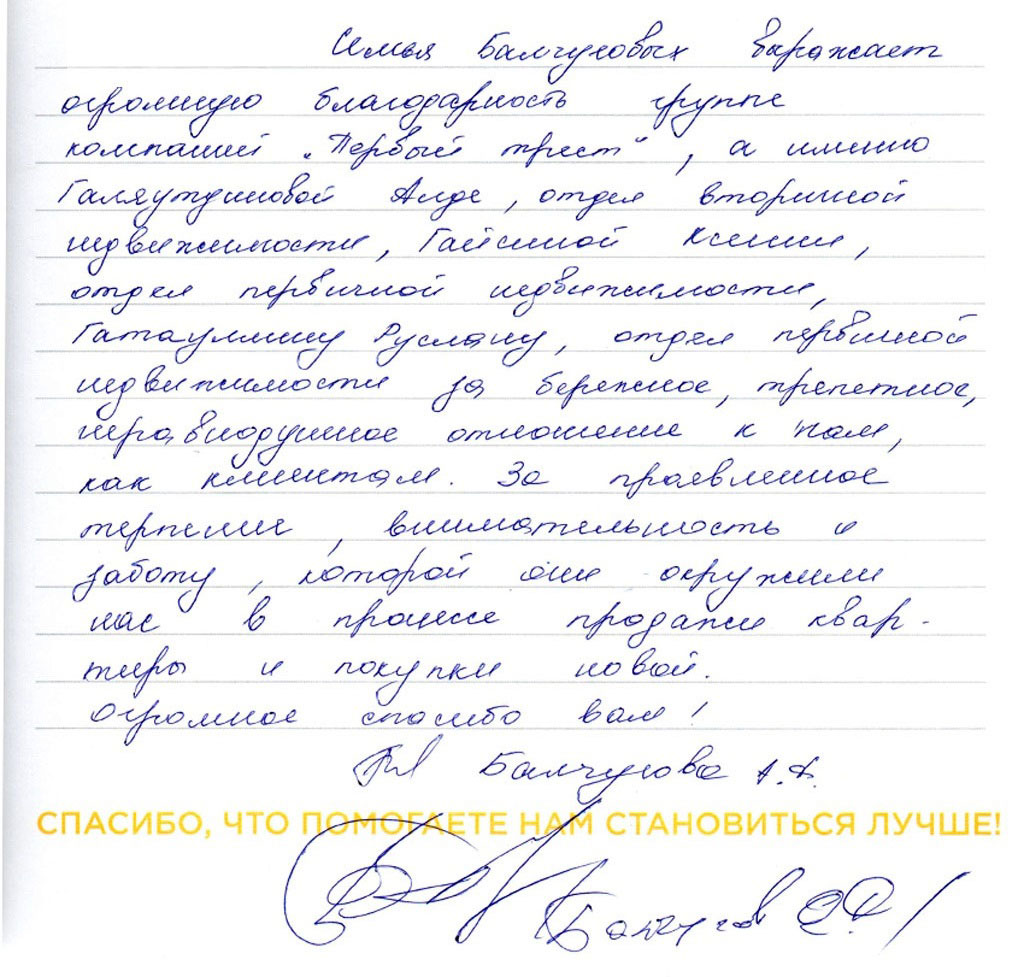 Семья Балчуговых выражает
огромную благодарность группе
компаний „Первый трест", а именно
Галяутдиновой Аиде, отдел вторичной
недвижимости, Гайсиной Ксении,
отдел первичной недвижимости,
Гатауллину Руслану, отдел первичной
недвижимости за бережное, трепетное,
неравнодушное отношение к нам,
как клиентам. За проявленное
терпение, внимательность и
заботу, которой они окружили
нас в процессе продажи квар-
тиры и покупки новой.
Огромное спасибо вам!
Балчугова А.Ф.
СПАСИБО, ЧТО ПОМОГАЕТЕ НАМ СТАНОВИТЬСЯ ЛУЧШЕ!
Балчугов